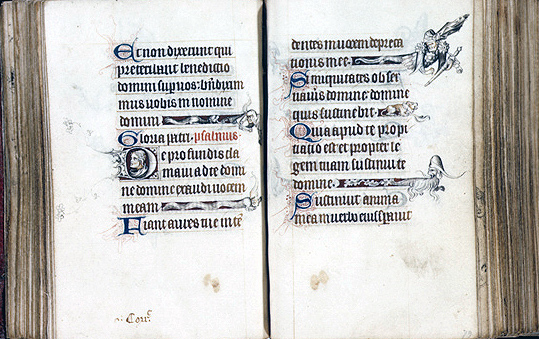 Et non dixerunt qui
preteribant benedictio
domini super uos: bn̄dixim
mus uobis in nomine
domini
Gloria patri. psalmus.
De profundis cla
maui ad te domi
ne domine exaudi uocem
meam
Fiant aures tue inten̄
dentes in uocem depreca
tionis mee.
Si iniquitates obser
uaueris domine domine
quis sustinebit.
Quia apud te propi
tiatio est et propter le
gem tuam sustinui te
domine.
Sustinuit anima
mea in uerbo eius sperauit
Corr.